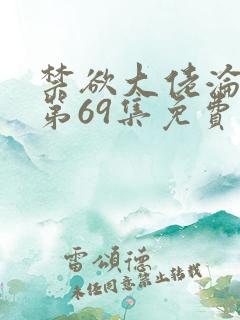 禁欲大佬淪
第69集免費
雷頌德
未经同意禁止转载